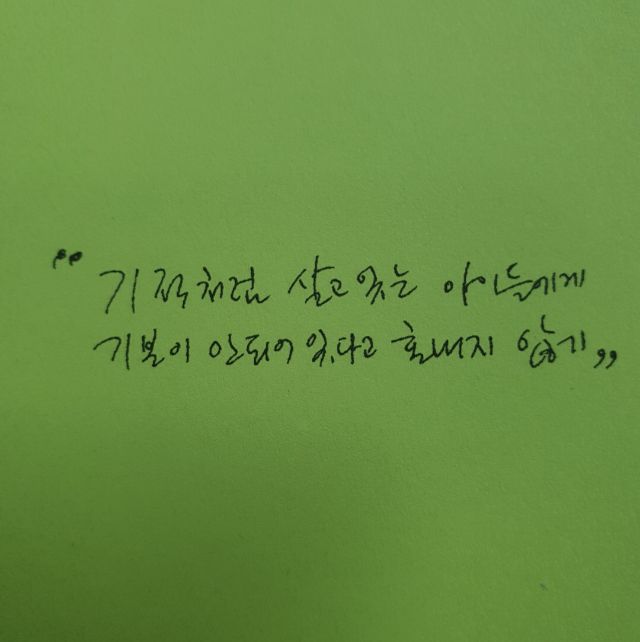 “기적처럼 살고있는 아이들에게
기본이 안되어 있다고 혼내지 않기”